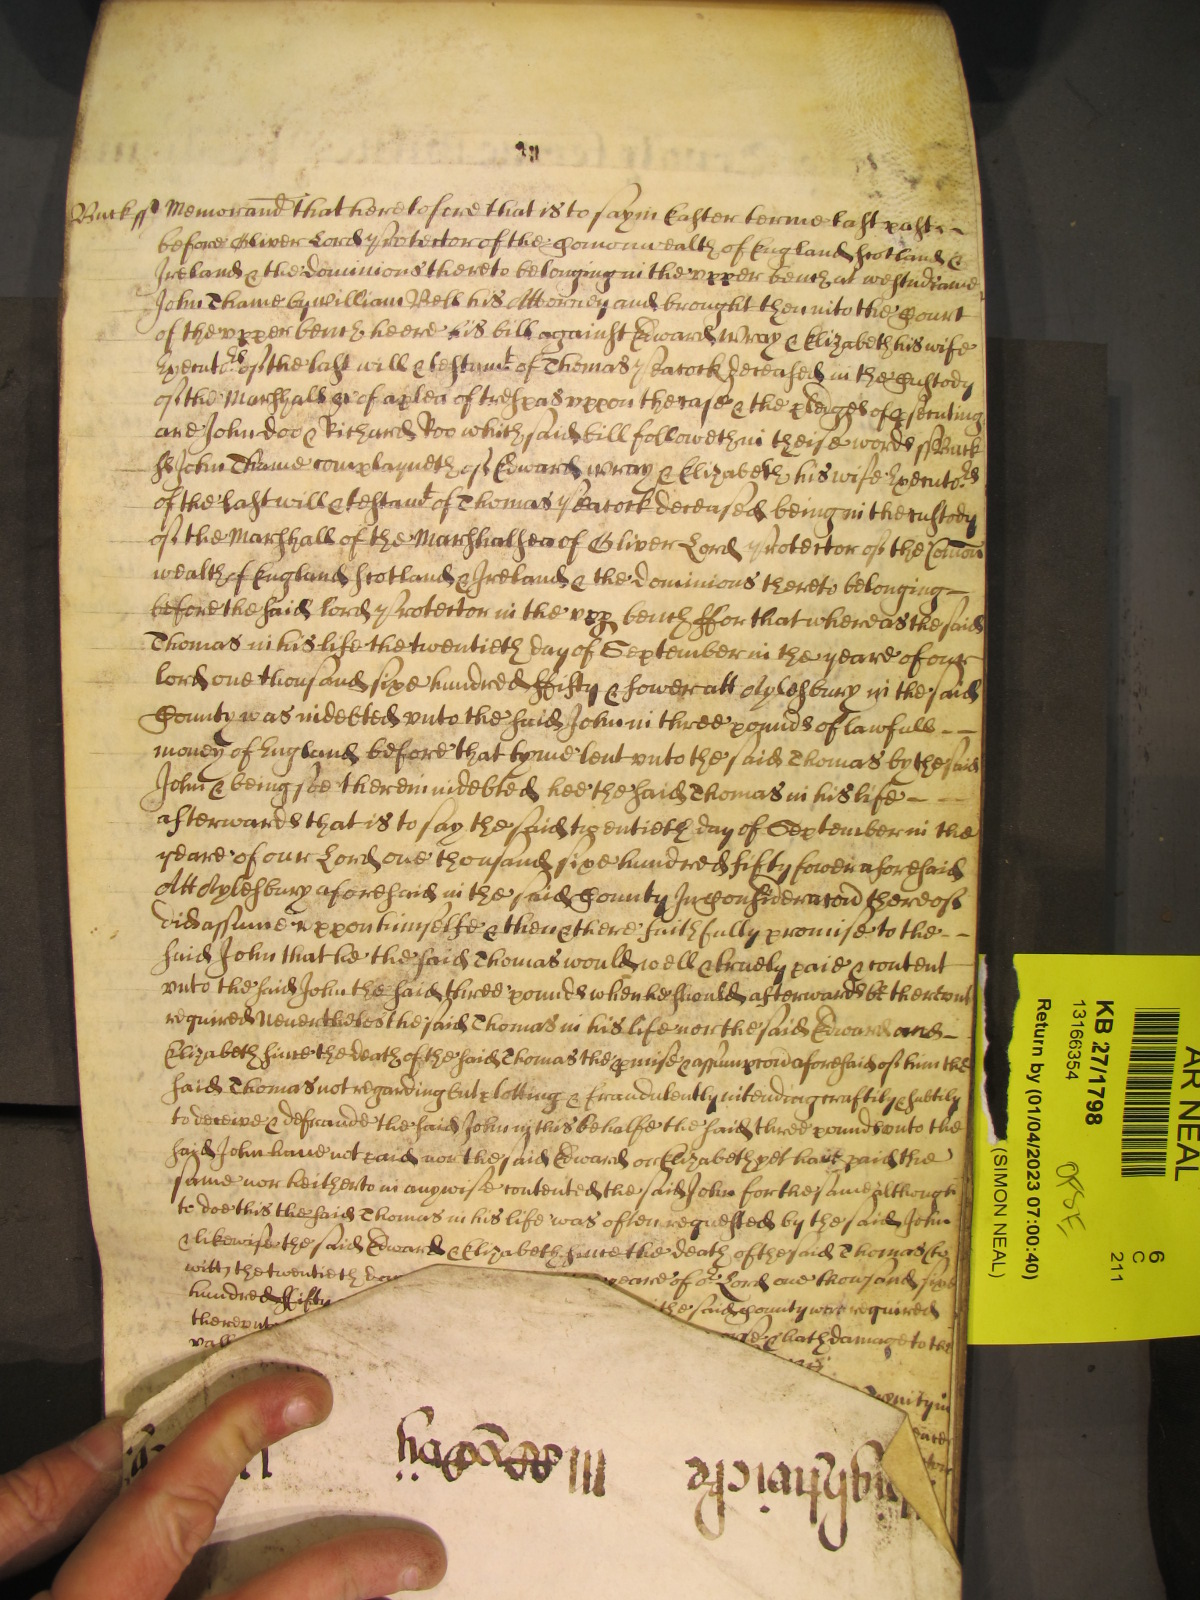 Buck ss Memorand that heretofore that is to say in Easter terme last past
before Oliver Lord Protector of the Comonwealth of England Scotland &
Ireland & the dominions thereto belonging in the upper bench at Westm came
John Thame by William Bell his Attorney and brought then into the Court
of the upper bench heere his bill against Edward Wray & Elizabeth his wife
Executors of the last will & testamt of Thomas Peacock deceased in the Custody
of the Marshall &c of a plea of trespas uppon the case & the pledges of psecuting
are John Doo & Richard Roo which said bill followeth in theise words ss Buck
ss John Thame complayneth of Edward Wray & Elizabeth his wife Executors
of the last will & testamt of Thomas Peacock deceased being in the custody
of the Marshall of the Marshalsea of Oliver Lord Protector of the Comon
wealth of England Scotland & Ireland & the dominions thereto belonging
before the said lord Protector in the upp bench ffor that whereas the said
Thomas in his life the twentieth day of September in the yeare of our
lord one thousand sixe hundred ffifty & fower att Aylesbury in the said
County was indebted unto the said John in three pounds of lawfull
money of England before that tyme lent unto the said Thomas by the said
John & being soe therein indebted hee the said Thomas in his life
afterwards that is to say the said twentieth day of September in the
yeare of our Lord one thousand sixe hundred fifty fower aforesaid
Att Aylesbury aforesaid in the said County In Consideracon thereof
did assume uppon himselfe & then & there faithfully promise to the
said John that he the said Thomas would well & truely paie & content
unto the said John the said three pounds when he should afterwards be thereunto
required Neverthelesse the said Thomas in his life nor the said Edward and
Elizabeth since the death of the said Thomas the pmise & assumpcon aforesaid of him the
said Thomas not regarding but plotting & fraudulently intending craftily & suttly
to deceive & defraude the said John in this behalfe the said three pounds unto the
said John have not paid nor the said Edward or Elizabeth yet hath paid the
same nor heitherto in anywise contented the said John for the same although
to doe this the said Thomas in his life was often requested by the said John
& likewise the said Edward & Elizabeth since the death of the said Thomas to
witt the twentieth day yeare of or Lord one thousand sixe
hundred ffifty the said County were required
thereunto &c hath damage to the
AR NEAL
KB 27/1798
13166354
Return by (01/04/2023 07:00:40)
(SIMON NEAL)
6
C
211